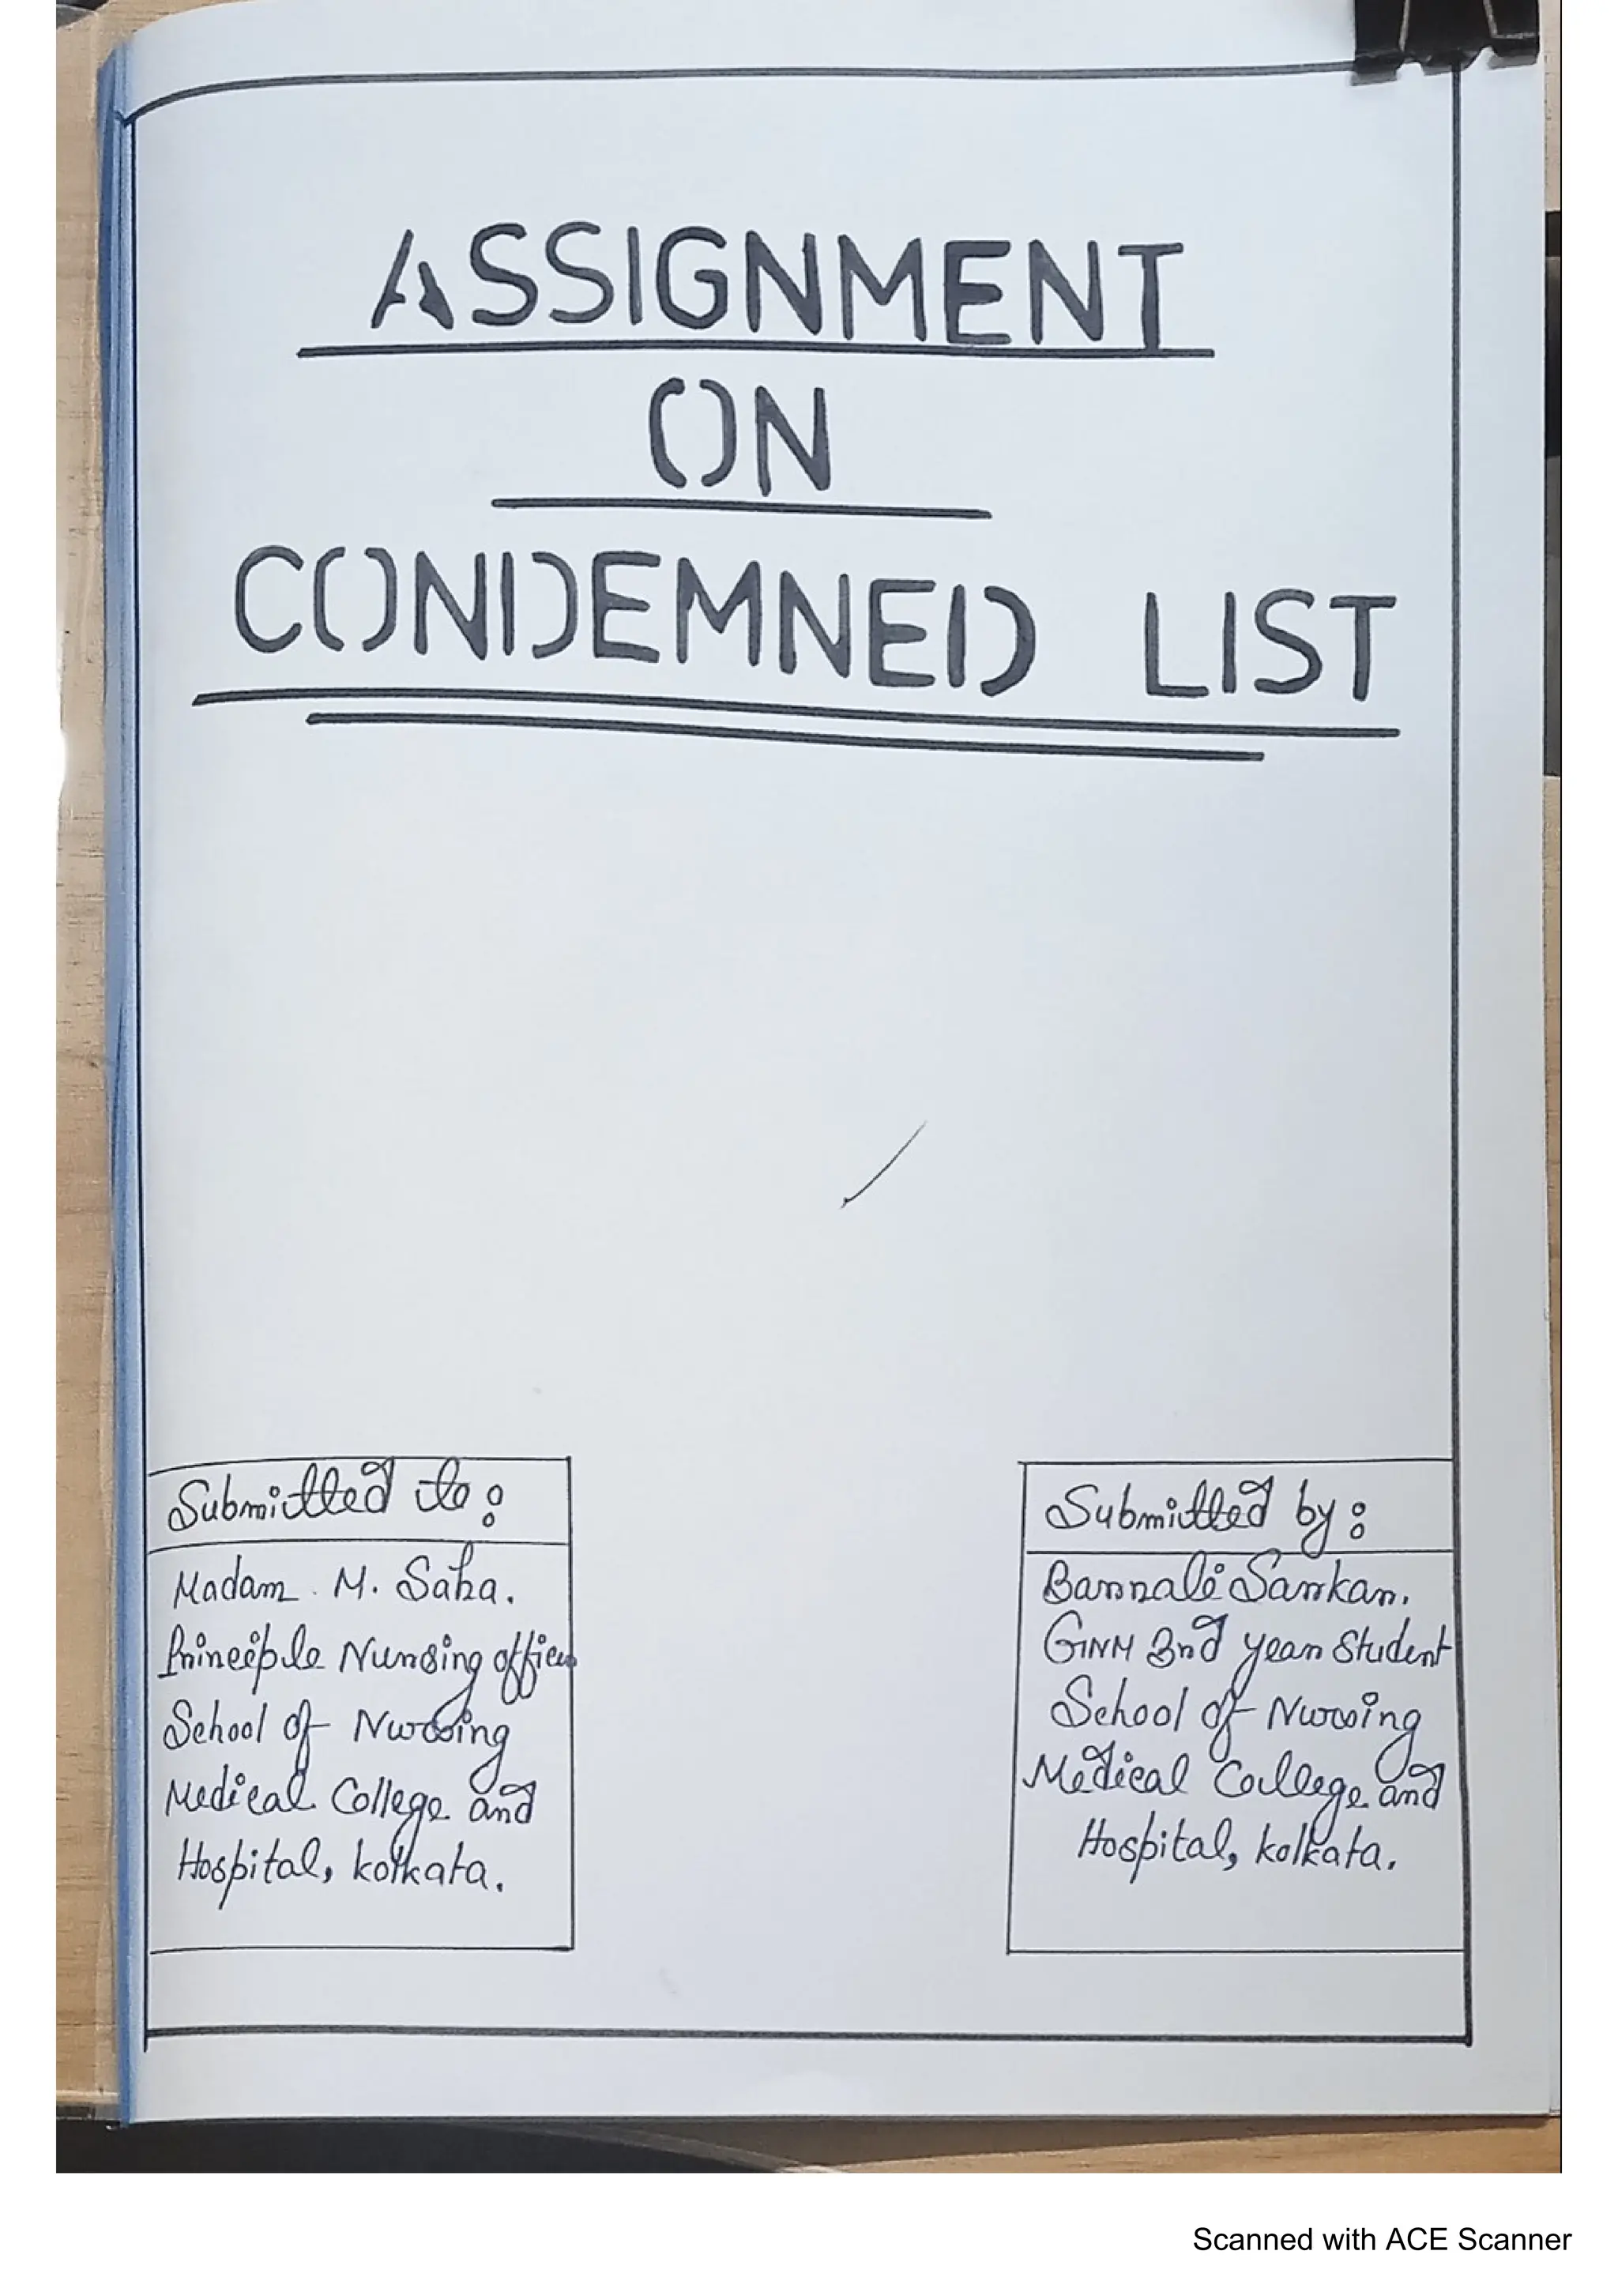 ASSIGNMENT
ON
CONDEMNED LIST
Submitted to :
Madam M. Saha.
Principle Nursing officer
School of Nursing
Medical College and
Hospital, kolkata.
Submitted by :
Barnali Sarkar.
GNM 3rd year Student
School of Nursing
Medical College and
Hospital, kolkata.
Scanned with ACE Scanner